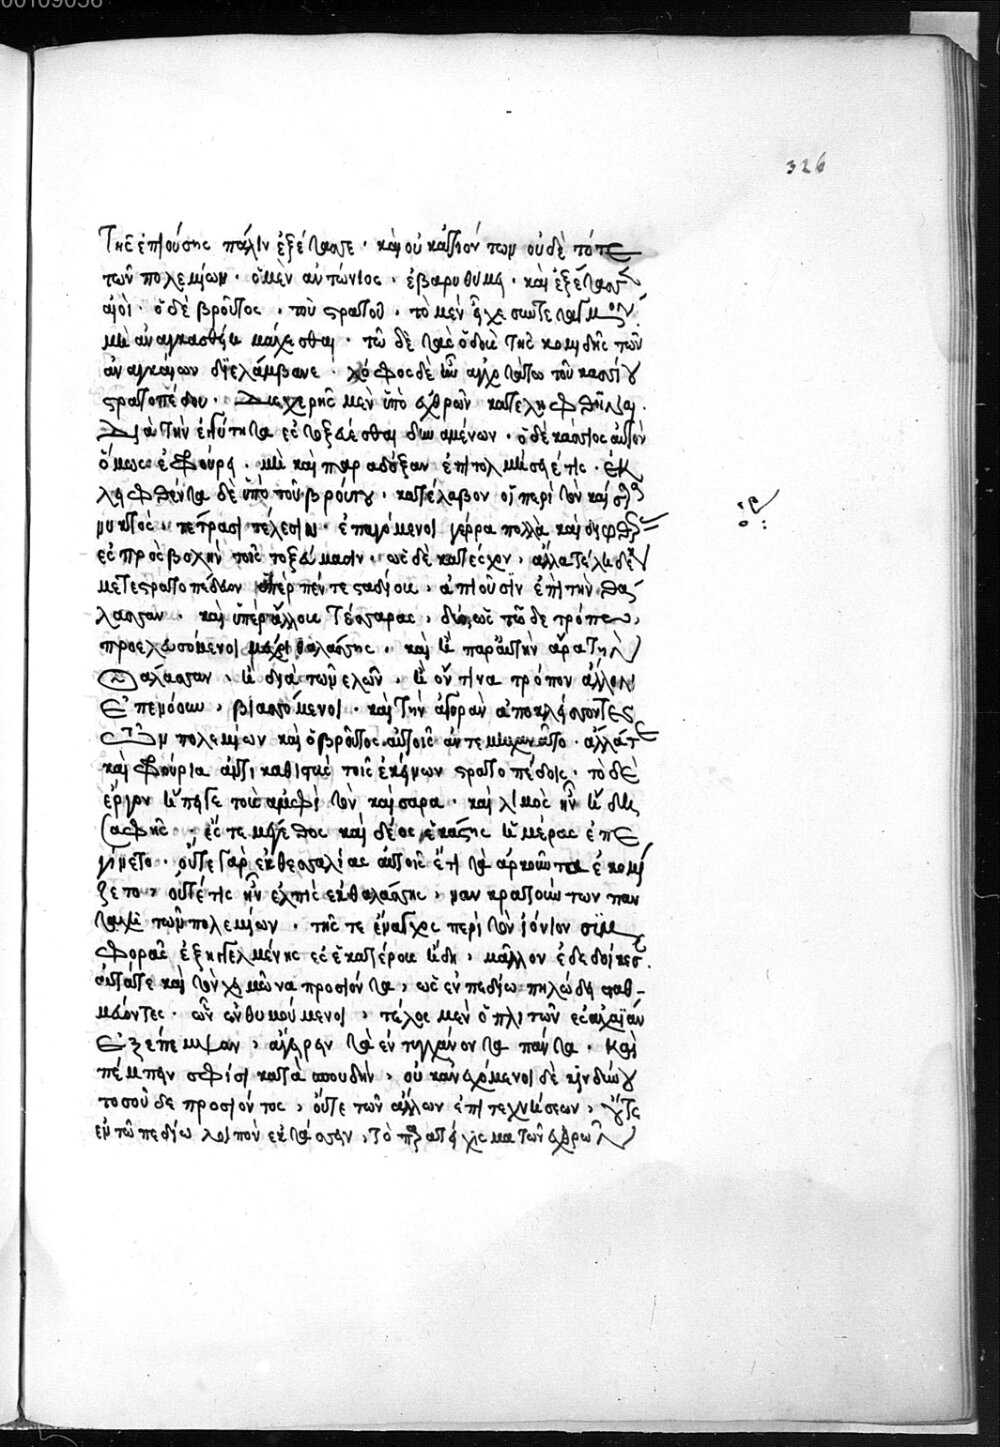 00109056
326
Τῆς ἐπιούσης πάλιν ἐξέτασσε· καὶ οὐ κατιόντων οὐδὲ τότε
τῶν πολεμίων· ὁ μὲν ἀντώνιος· ἐβαρυθύμει· καὶ ἐξέτασσεν
αἰεὶ· ὁ δὲ βροῦτος· τοῦ στρατοῦ· τὸ μὲν εἶχε συντεταγμένον
μὴ ἀναγκασθείη μάχεσθαι· τῶ δὲ τὰς ὁδοὺς τῆς κομιδῆς τῶν
ἀναγκαίων διελάμβανε· λόφος δὲ ἦν ἀγχοτάτω τοῦ κασσίου
στρατοπέδου· Δυσχερὴς μὲν ὑπὸ ἐχθρῶν καταληφθῆναι·
Διὰ τὴν ἐγγύτητα ἐστοξεύεσθαι δυναμένων· ὁ δὲ κάσσιος αὐτὸν
ὅμως ἐφρούρει· μὴ καὶ παρὰ δόξαν ἐπιτολμήσειέ τις· ἐκ
λειφθέντα δὲ ὑπὸ τοῦ βρούτου· κατέλαβον οἱ περὶ τὸν καίσαρα
νυκτὸς· τέτρασι τέλεσιν· ἐπαγόμενοι γέρρα πολλὰ καὶ διφθέρας
ἐς προσβολὴν τοῖς τοξεύμασιν· ὡς δὲ κατέσχον· ἄλλα τέλη δέκα
μετεστρατοπέδευον ὑπὲρ πέντε σταδίους· ἀπιοῦσιν ἐπὶ τὴν θά
λασσαν· καὶ ὑπὲρ ἄλλους τέσσαρας· δύο, ὡς τῶδε τρόπω,
προελευσόμενοι μέχρι θαλάσσης· καὶ ἢ παρ' αὐτὴν ἄρα τὴν
θάλασσαν· ἢ διὰ τῶν ἑλῶν· ἢ ὅντινα τρόπον ἄλλον
ἐπενόουν, βιασόμενοι· καὶ τὴν ἀγορὰν ἀποκλείσοντες
τῶν πολεμίων καὶ ὁ βροῦτος αὐτοῖς ἀντεμηχανᾶτο· ἄλλα τε
καὶ φρούρια ἀντικαθιστὰς τοῖς ἐκείνων στρατοπέδοις· τὸ δὲ
ἔργον ἤπειγε τοὺς ἀμφὶ τὸν καίσαρα· καὶ λιμὸς ἦν ἤδη
σαφὴς· ἔς τε μέγεθος καὶ δέος ἑκάστης ἡμέρας ἐπε
γίνετο· οὔτε γὰρ ἐκ θεσσαλίας αὐτοῖς ἔτι τὰ ἀρκοῦντα ἐκομί
ζετο, οὔτέ τις ἦν ἐλπὶς ἐκ θαλάσσης, ναυκρατούντων παν
ταχῆ τῶν πολεμίων· τῆς τε ἔναγχος περὶ τὸν ἰόνιον συμ
φορᾶς ἐξηγγελμένης ἐς ἑκατέρους ἤδη, μᾶλλον ἐδεδοίκεσαν
αὐτά τε καὶ τὸν χειμῶνα προσιόντα, ὡς ἐν πεδίω πηλώδει σταθ-
μεύοντες· ὧν ἐνθυμούμενοι, τέλος μὲν ὁπλιτῶν ἐς ἀχαΐαν
ἐξέπεμψαν, ἀγείρειν τὰ ἐντυγχάνοντα πάντα· καὶ
πέμπειν σφίσι κατὰ σπουδὴν, οὐκ ἀνεχόμενοι δὲ κινδύνου
τοσοῦδε προσιόντος, οὔτε τῶν ἄλλων ἐπιτεχνήσεων, οὔτε
ἐν τῶ πεδίω λοιπὸν ἐκτάσσειν, τὸ